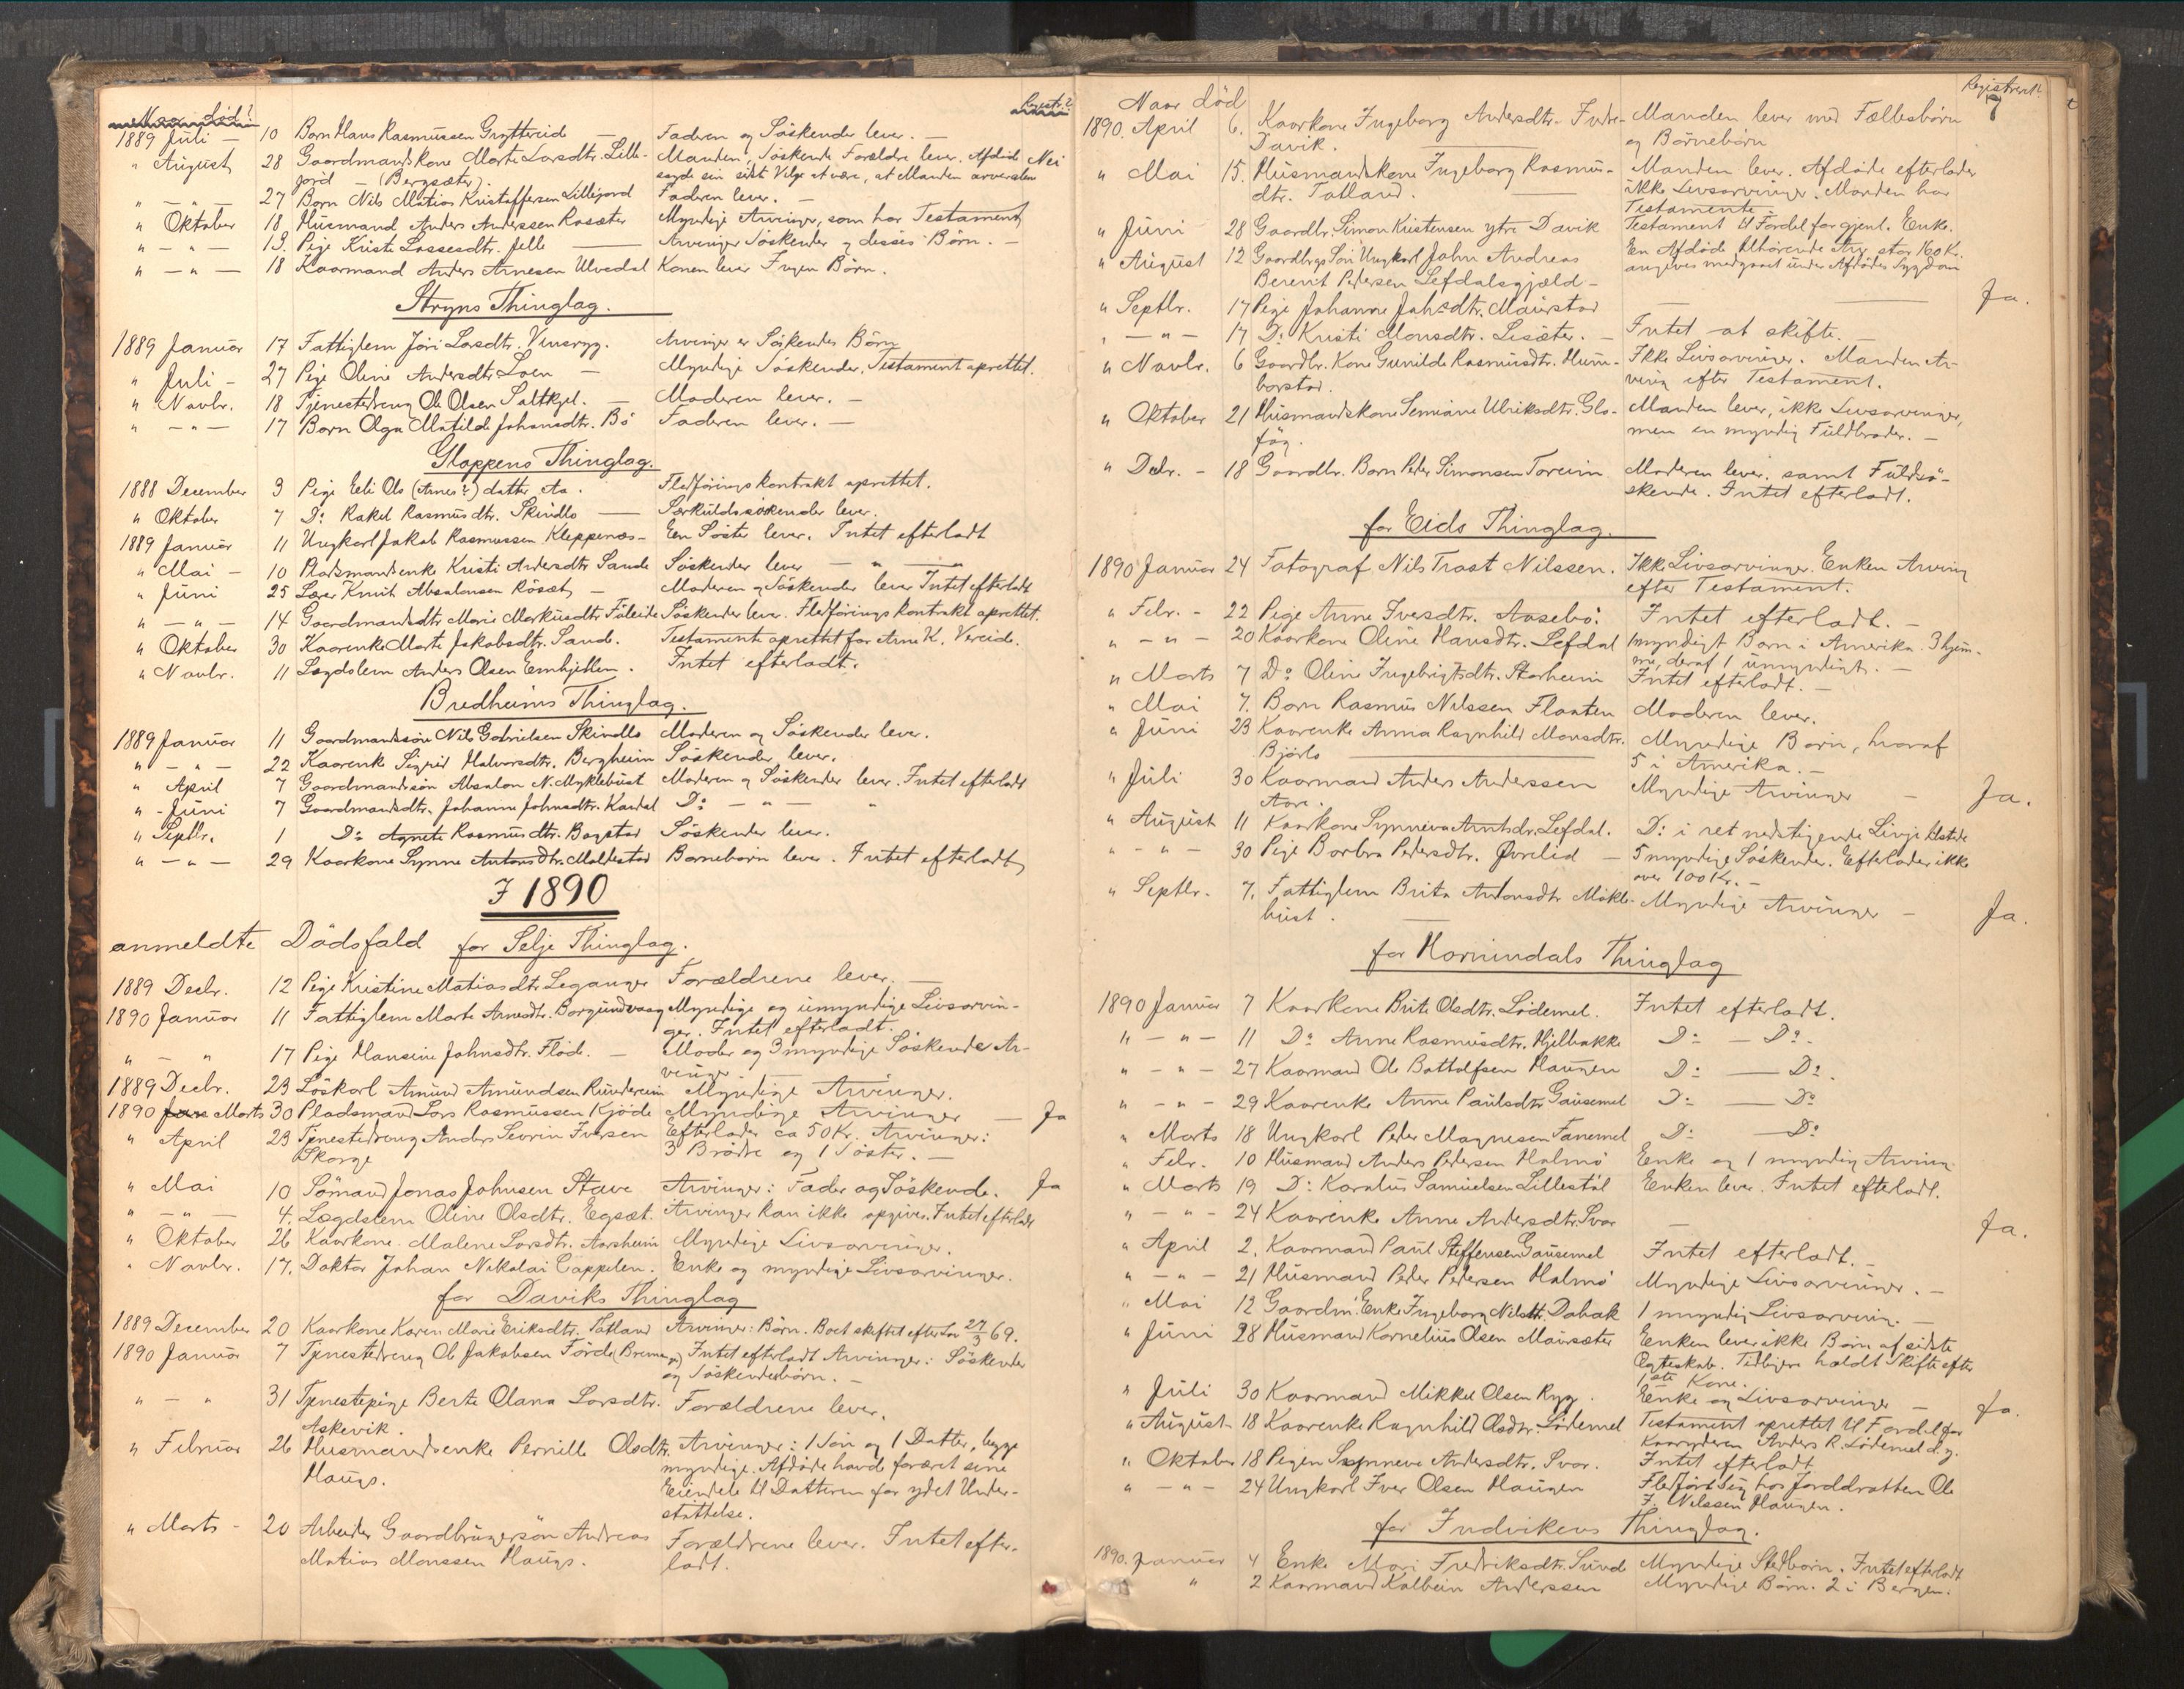 Naar død?
Registr.?
1889 Juli – 10 Barn Hans Rasmussen Gryttereid – Faderen og Söskender lever. –
" August 28 Gaardmandskone Marte Larsdtr. Lille- Manden, Söskende, Forældre lever. Afdöde Nei
jord – (Bergsæter). sagde sin sidste Vilje at være, at Manden arver alen
" – " – 27 Barn Nils Matias Kristoffersen Lillejord Faderen lever. –
" Oktober 18 Husmand Anders Anderssen Rosæter Myndige Arvinger, som har Testament
" – " – 13. Pige Kristi Lassesdtr. Jelle Arvinger Söskender og disses Børn. –
" – " – 18 Kaarmand Anders Arnesen Ulvedal Konen lever Ingen Børn.
Stryns Thinglag.
1889 Januar 17 Fattiglem Jöri Larsdtr. Vinsryg. Arvinger er Söskendes Börn
" Juli – 27 Pige Oline Andersdtr. Loen – Myndige Söskender. Testament oprettet.
" Novbr. 18 Tjenestedreng Ole Olsen Saltkjel. – Moderen lever. –
" – " – 17 Barn Olga Matilde Johansdtr. Bö Faderen lever. –
Gloppens Thinglag.
1888 December 3 Pige Eli Ols (Arnes?) datter Aa. Fledföringskontrakt oprettet.
" Oktober 7 D: Rakel Rasmusdtr. Skindlo – Særkuldssöskender lever.
1889 Januar 11 Ungkarl Jakob Rasmussen Kleppenæs – Een Söster lever. Intet efterladt
" Mai – 10 Pladsmandsenke Kristi Andersdtr. Sande Söskender lever – " –
" Juni 25 Lærer Knut Absalonsen Rösæt – Moderen og Söskender lever Intet efterladt
" – " – 14 Gaardmandsdtr. Marie Markusdtr. Fåleide Söskender lever. Fledföringskontrakt oprettet.
" Oktober 30 Kaarenke Marte Jakobsdtr. Sand. Testament oprettet for Arne K. Vereide.
" Novbr. 11 Lægdslem Anders Olsen Emhjellen. Intet efterladt.
Bredheims Thinglag.
1889 Januar 11 Gaardmandssön Nils Gabrielsen Skindlo Moderen og Söskender lever.
" – " – 22 Kaarenke Sigrid Halvorsdtr. Bergheim Söskender lever.
" April 7 Gaardmandssön Absalon N. Myklebust Moderen og Söskender lever. Intet efterladt
" – Juni 7 Gaardmandsdtr. Johanne Johnsdtr. Kandal D: – " – "
" Septbr. 1 D: Agnete Rasmusdtr. Bogstad Söskender lever.
" – " – 29 Kaarkone Synne Antonsdtr. Moldestad Børnebørn lever. Intet efterladt
I 1890
anmeldte Dödsfald for Selje Thinglag.
1889 Decbr. 12 Pige Kristine Matiasdtr Leganger Forældrene lever. –
1890 Januar 11 Fattiglem Marte Arnesdtr. Borgundvaag Myndige og umyndige Livsarvin-
ger. Intet efterladt.
" – " 17 Pige Hansine Johnsdtr. Flöde. – Moder og 3 myndige Söskende Ar-
vinger. –
1889 Decbr. 23 Löskarl Amund Amundsen Runderein Myndige Arvinger.
1890 Marts 30 Pladsmand Lars Rasmussen Kjöde Myndige Arvinger – Ja
" April 23 Tjenestedreng Anders Severin Iversen Efterlader ca 50 Kr. Arvinger:
Skorge 3 Brödre og 1 Söster. –
" Mai 10 Sömand Jonas Johnsen Stave Arvinger: Fader og Söskende. Ja
" – " – 4. Lægdslem Oline Olsdtr. Egset. Arvinger kan ikke opgives. Intet efterladt
" Oktober 26 Kaarkone Malene Larsdtr. Aarsheim Myndige Livsarvinger.
" Novbr. 17. Doktor Johan Nikolai Cappelen. Enke og myndige Livsarvinger.
for Daviks Thinglag
1889 December 20 Kaarkone Karen Marie Eriksdtr. Tatland Arvinger: Börn. Boet skiftet efter Lov 27/3 69.
1890 Januar 7 Tjenestedreng Ole Jakobsen Förde Intet efterladt Arvinger: Söskender
og Söskendebörn. –
" – " 31 Tjenestepige Berte Olana Larsdtr. Forældrene lever.
Askevik.
" Februar 26 Husmandsenke Pernille Olsdtr. Arvinger: 1 Sön og 1 Datter, begge
Haugs. myndige. Afdöde havde foræret sine
Eiendele til Datteren for ydet Under-
støttelse.
" Marts – 20 Arbeider Gaardbrugersön Andreas Forældrene lever. Intet efter-
Matias Monssen Haugs. ladt.
Naar död
Registreret?
7
1890 April 6. Kaarkone Ingeborg Andersdtr. Indre- Manden lever med Fællesbörn
Davik. og Börnebörn
" Mai 15. Husmandskone Ingeborg Rasmus- Manden lever. Afdöde efterlader
dtr. Tatland. ikke Livsarvinger. Manden har
Testamente
" Juni 28 Gaardbr. Simon Kristensen ytre Davik Testament til Fordel for gjenl. Enke.
" August 12 Gaardbrgs Sön Ungkarl John Andreas En Afdöde tilhörende Arv stor 160 Kr.
Berent Pedersen Lefdalsgjæld – angives medgaaet under Afdödes Sygdom
" Septbr. 17 Pige Johanne Johsdtr. Maurstad – Ja.
" – " – 17 D: Kristi Monsdtr. Lisæter. – Intet at skifte. –
" Novbr. 6 Gaardbr. Kone Gunilde Rasmusdtr. Hum- Ikke Livsarvinger. Manden Ar-
borstad. ving efter Testament.
" Oktober 21 Husmandskone Semiane Ulriksdtr. Glo- Manden lever, ikke Livsarvinger,
fög. men en myndig Fuldbroder. –
" Decbr. – 18 Gaardbr. Barn Peder Simonsen Torheim Moderen lever, samt Fuldsö-
skende. Intet efterladt.
for Eids Thinglag.
1890 Januar 24 Fotograf Nils Trost Nilssen. Ikke Livsarvinger. Enken Arving
efter Testament.
" Febr. – 22 Pige Anne Iversdtr. Aasebö. Intet efterladt. –
" – " – 20 Kaarkone Oline Hansdtr. Lefdal 1 myndigt Barn i Amerika. 3 hjem-
me, deraf 1 umyndigt. –
" Marts 7 D: Oline Ingebrigtsdtr. Starheim Intet efterladt. –
" Mai 7. Barn Rasmus Nilssen Flaaten Moderen lever.
" Juni 23 Kaarenke Anna Ragnhild Monsdtr. Myndige Börn, hvoraf
Bjørlo 5 i Amerika. –
" Juli 30 Kaarmand Anders Anderssen Myndige Arvinger – Ja.
Aare.
" August 11 Kaarkone Synneva Arntsdr. Lefdal. D: i ret nedstigende Linje tilstede
" – " – 30 Pige Barbra Pedersdtr. Øvrelid – 5 myndige Söskender. Efterlader ikke
over 100 Kr. –
" Septbr. 7. Fattiglem Brita Antonsdtr Mökle- Myndige Arvinger – Ja.
bust.
for Hornindals Thinglag
1890 Januar 7 Kaarkone Brite Olsdtr. Lödemel. Intet efterladt.
" – " – 11 D: Anne Rasmusdtr. Hjelbakke D: – D:.
" – " – 27 Kaarmand Ole Bottolfsen Haugen D: – D:.
" – " – 29 Kaarenke Anne Paulsdtr Gausemel D: – D:
" Marts 18 Ungkarl Peder Magnesen Tanemel D: – D:
" Febr. 10 Husmand Anders Pedersen Holmö Enke og 1 myndig Arving
" Marts 19 D: Karolus Samuelsen Lillestöl Enken lever. Intet efterladt.
" – " – 24 Kaarenke Anne Andersdtr. Svor – Ja.
" April 2. Kaarmand Paul Steffensen Gausemel Intet efterladt. –
" – " – 21 Husmand Peder Pedersen Holmö Myndige Livsarvinger. –
" Mai 12 Gaardm. Enke Ingeborg Nilsdtr. Dahak 1 myndig Livsarving. –
" Juni 28 Husmand Kornelius Olsen Maursæter Enken lever ikke Börn af sidste
Ægteskab. Tidligere holdt Skifte efter
1ste Kone.
" Juli 30 Kaarmand Mikkel Olsen Ryg. Enke og Livsarvinger – Ja.
" August 18 Kaarenke Ragnhild Olsdtr. Lödemel Testament oprettet til Fordel for
Kaaryderen Anders R. Lödemel d.y.
" Oktober 18 Pigen Synneve Andersdtr. Svor. Intet efterladt
" – " – 24 Ungkarl Iver Olsen Haugen Fledfört sig hos Jorddrotten Ole
J. Nilssen Haugen.
for Indvikens Thinglag.
1890. Januar 4 Enke Mari Fredriksdtr. Sunde Myndige Stedbörn. Intet efterladt
" 2 Kaarmand Kolbein Anderssen Myndige Börn. 2 i Bergen.